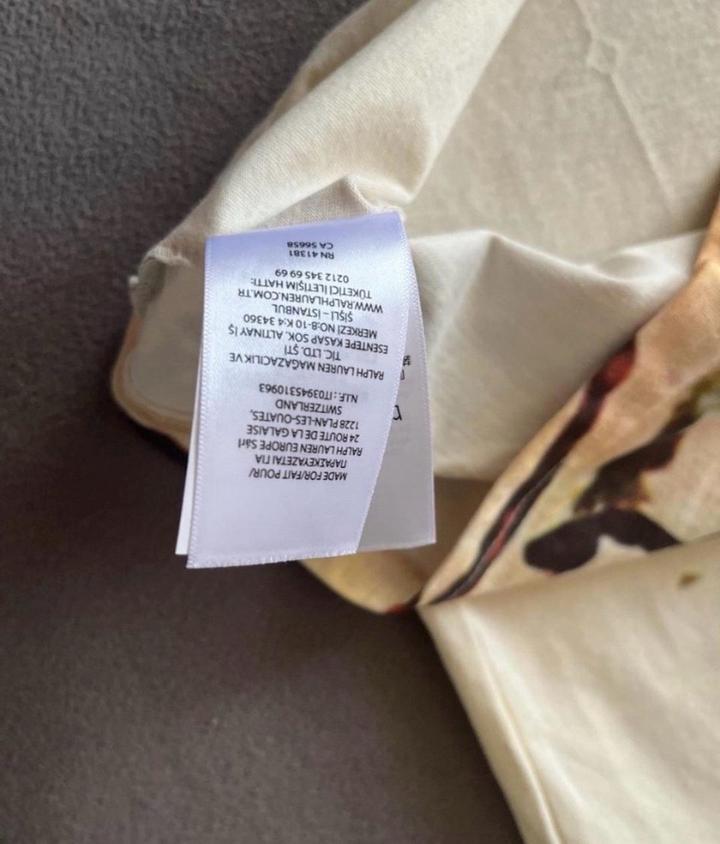 MADE FOR/FAIT POUR/
ΠΑΡΑΣΚΕΥΑΖΕΤΑΙ ΓΙΑ
RALPH LAUREN EUROPE Sàrl
24 ROUTE DE LA GALAISE
1228 PLAN-LES-OUATES,
SWITZERLAND
N.I.F.: IT03945310963
RALPH LAUREN MAĞAZACILIK VE
TIC. LTD. ŞTİ
ESENTEPE KASAP SOK. ALTINAY İŞ
MERKEZİ NO:8-10 K:4 34360
ŞİŞLİ - İSTANBUL
WWW.RALPHLAUREN.COM.TR
TÜKETİCİ İLETİŞİM HATTI:
0212 345 69 69
RN 41381
CA 56658